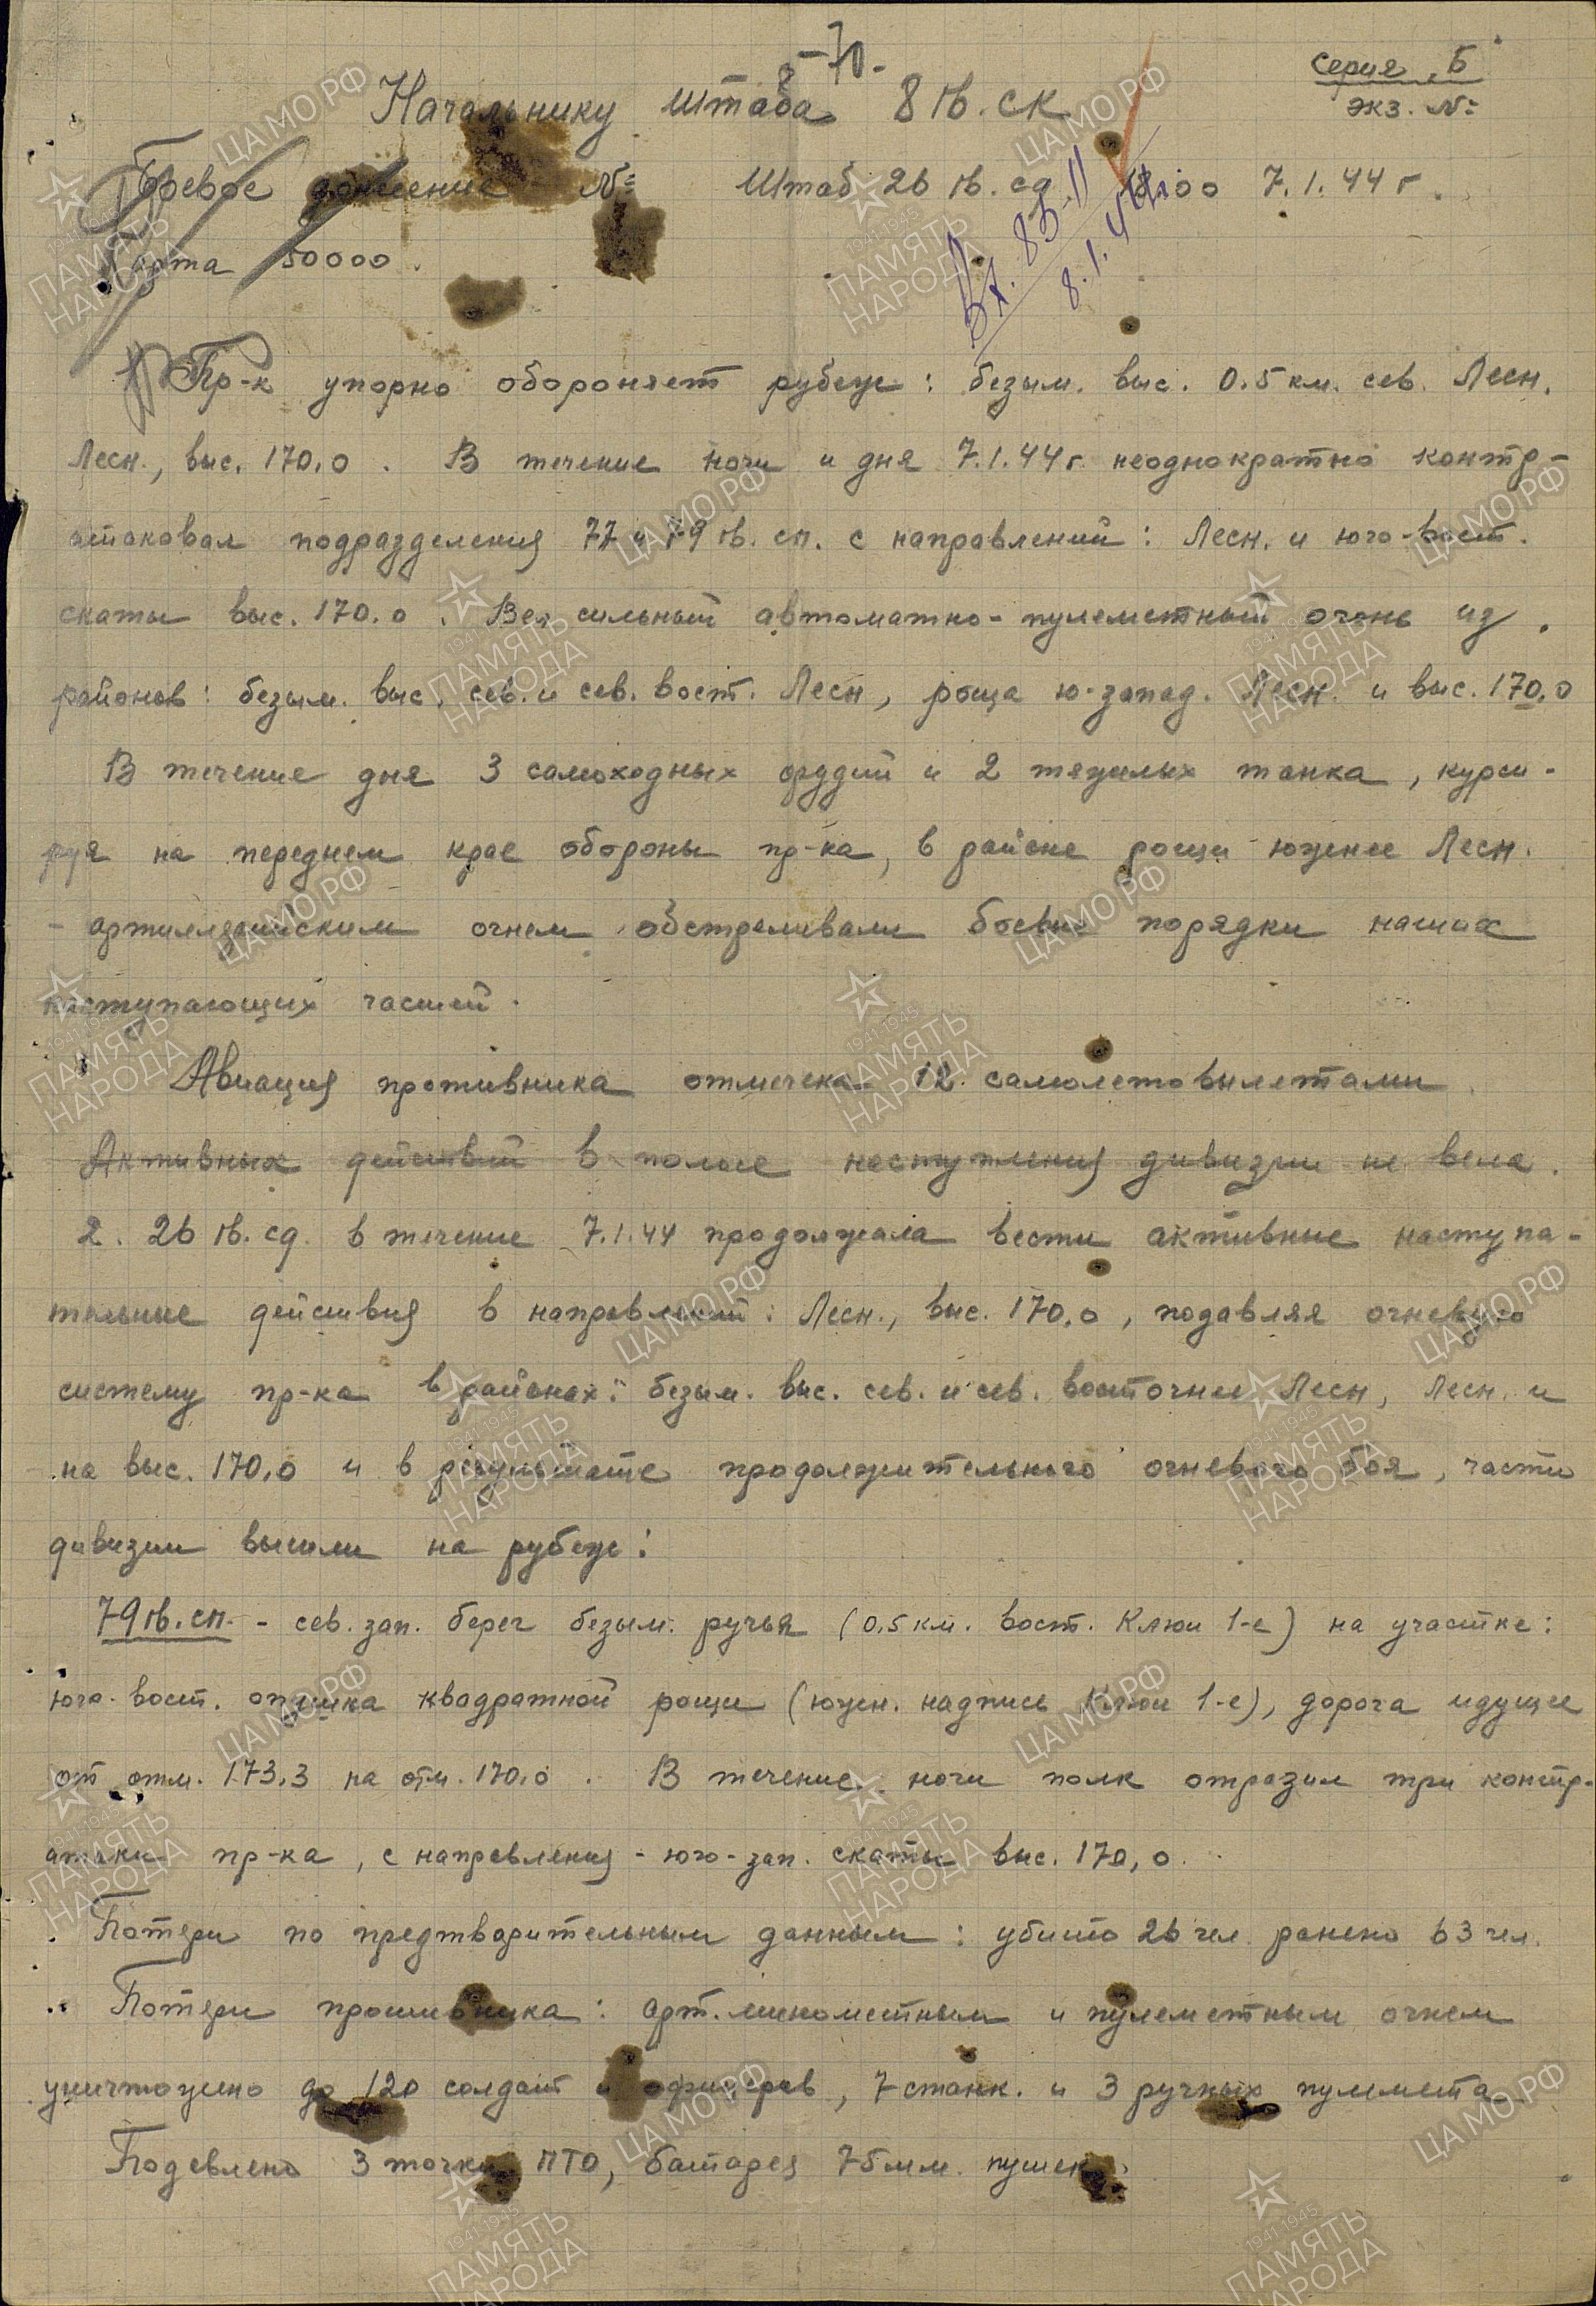 -70-
Серия "Б"
экз. №
Начальнику штаба 8 гв. ск
Боевое донесение № Штаб 26 гв. сд 18.00 7.1.44 г.
Карта 50000.
Вх. 85-11
8.1.44
Пр-к упорно обороняет рубеж: безым. выс. 0.5 км. сев. Лесн.
Лесн., выс. 170,0. В течение ночи и дня 7.1.44 г. неоднократно контр-
атаковал подразделения 77 и 79 гв. сп. с направлений: Лесн. и юго-вост.
скаты выс. 170.0. Вел сильный автоматно-пулеметный огонь из
районов: безым. выс. сев. и сев. вост. Лесн, роща ю-запад. Лесн. и выс. 170,0
В течение дня 3 самоходных орудий и 2 тяжелых танка, курси-
руя на переднем крае обороны пр-ка, в районе рощи южнее Лесн.
- артиллерийским огнем обстреливали боевые порядки наших
наступающих частей.
Авиация противника отмечена 12 самолетовылетами
Активных действий в полосе наступления дивизии не вела.
2. 26 гв. сд. в течение 7.1.44 продолжала вести активные наступа-
тельные действия в направлений: Лесн., выс. 170,0, подавляя огневую
систему пр-ка в районах: безым. выс. сев. и сев. восточнее Лесн, Лесн. и
на выс. 170,0 и в результате продолжительного огневого боя, части
дивизии вышли на рубеж:
79 гв. сп. - сев. зап. берег безым. ручья (0,5 км. вост. Клюи 1-е) на участке:
юго-вост. опушка квадратной рощи (южн. надпись Клюи 1-е), дорога идущее
от отм. 173,3 на отм. 170,0. В течение ночи полк отразил три контр-
атаки пр-ка, с направления - юго-зап. скаты выс. 170,0.
Потери по предтворительным данным: убито 26 чел. ранено 63 чел.
Потери противника: арт. минометным и пулеметным огнем
уничтожено до 120 солдат и офицеров, 7 станк. и 3 ручных пулемета
Подавлено 3 точки ПТО, батарея 75 мм. пушек.
ЦА МО РФ
1941-1945
ПАМЯТЬ
НАРОДА